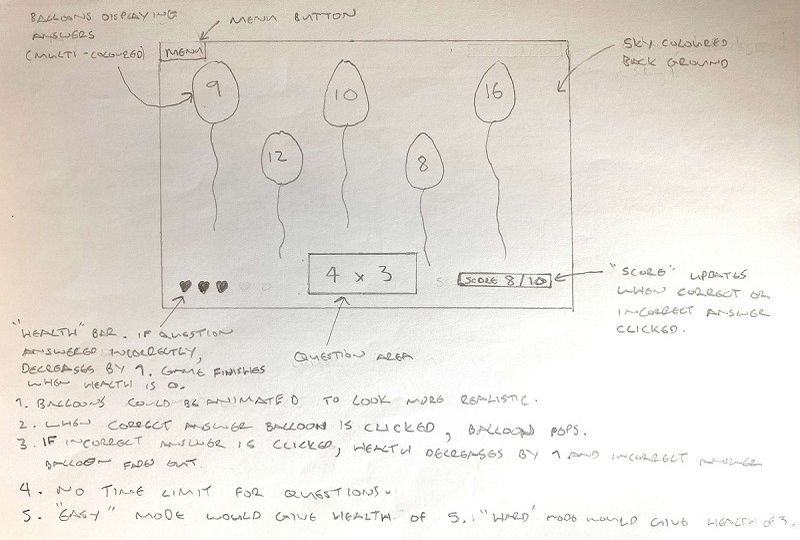 BALLOONS DISPLAYING
ANSWERS
(MULTI-COLOURED)
MENU BUTTON
MENU
SKY COLOURED
BACK GROUND
9
10
16
12
8
4 x 3
SCORE 8/10
"SCORE" UPDATES
WHEN CORRECT OR
INCORRECT ANSWER
CLICKED.
"HEALTH" BAR. IF QUESTION
ANSWERED INCORRECTLY,
DECREASES BY 1. GAME FINISHES
WHEN HEALTH IS 0.
QUESTION AREA
1. BALLOONS COULD BE ANIMATED TO LOOK MORE REALISTIC.
2. WHEN CORRECT ANSWER BALLOON IS CLICKED, BALLOON POPS.
3. IF INCORRECT ANSWER IS CLICKED, HEALTH DECREASES BY 1 AND INCORRECT ANSWER
BALLOON FADES OUT.
4. NO TIME LIMIT FOR QUESTIONS.
5. "EASY" MODE WOULD GIVE HEALTH OF 5. "HARD" MODE WOULD GIVE HEALTH OF 3.